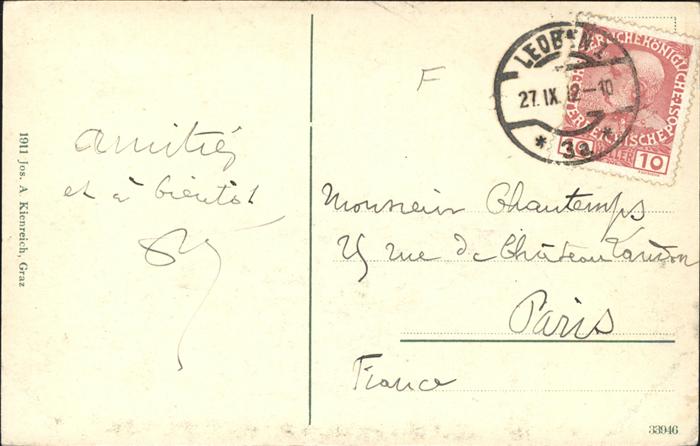 1911 Jos. A. Kienreich, Graz
amitiés
et à bientôt
F
LEOBEN 2
27.IX.12-10
* 3a *
KAISERLICHEKÖNIGLICHE
ÖSTERREICHISCHE POST
10 HELLER 10
Monsieur Chautemps
25 rue de Châteaulandon
Paris
France
33946